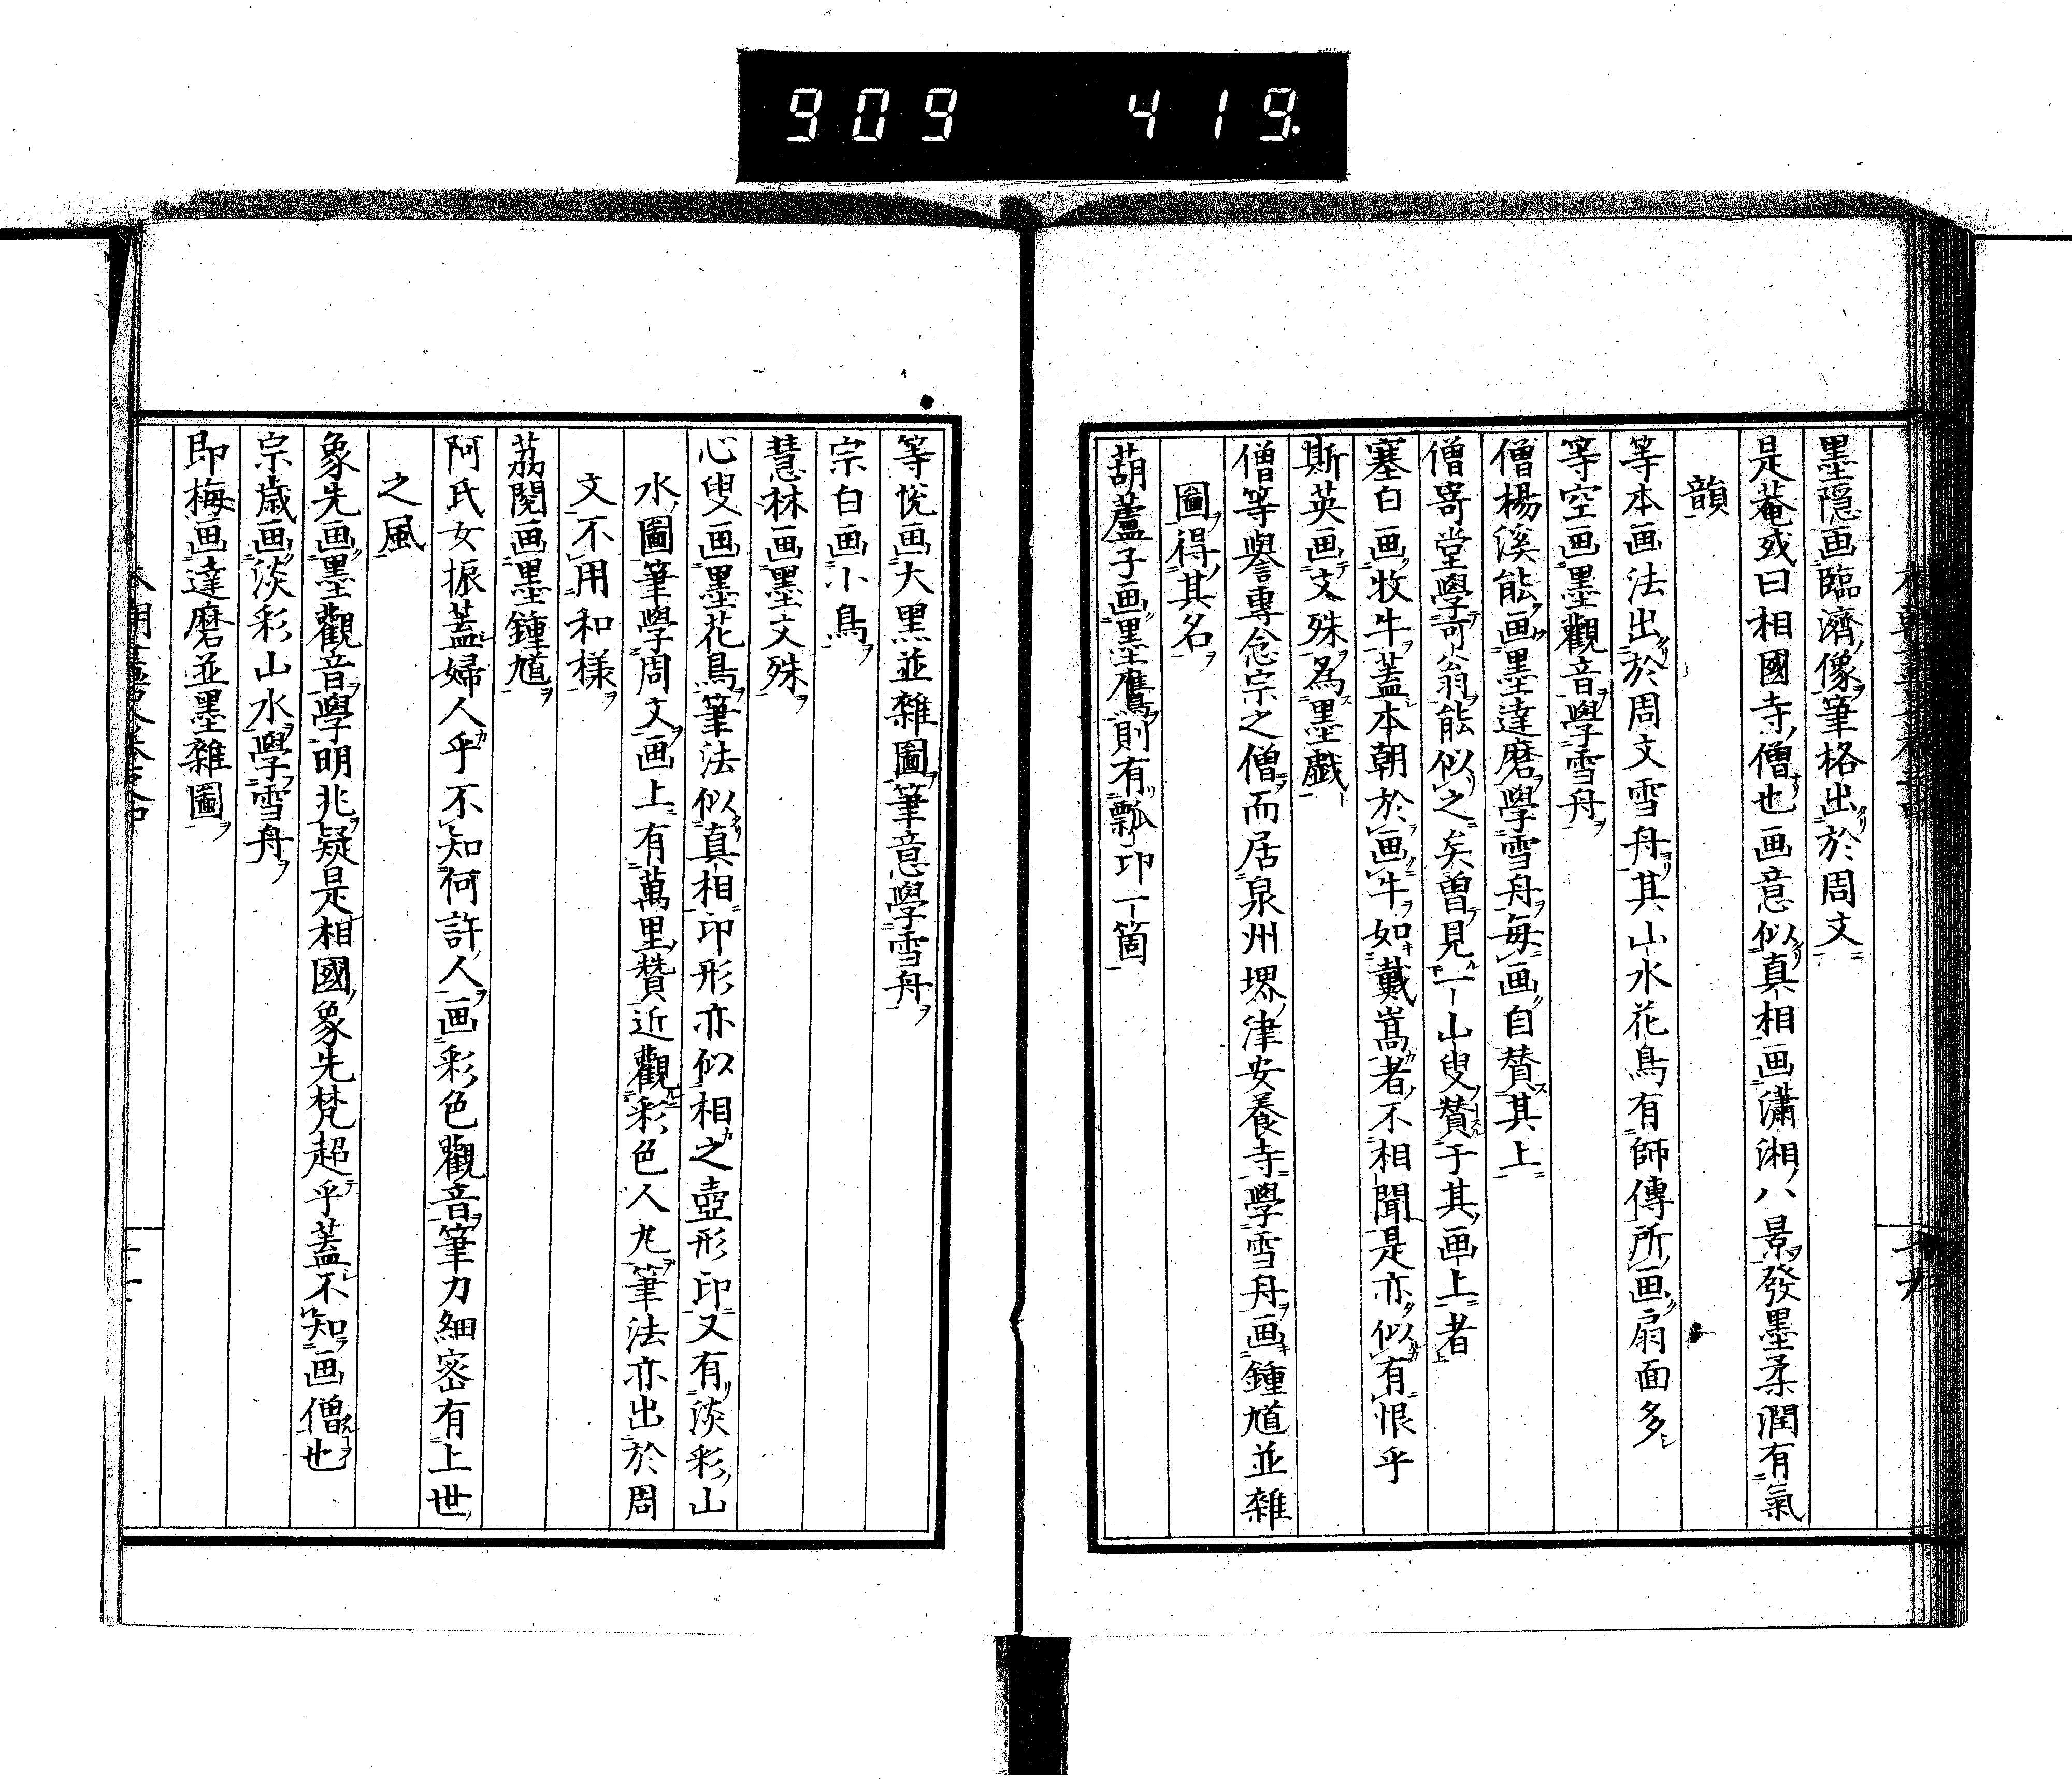 909 419
墨隠画臨濟像筆格出於周文
是菴或曰相國寺僧也画意似真相画瀟湘八景發墨柔潤有氣
韻
等本画法出於周文雪舟其山水花鳥有師傳所画扇面多
等空画墨觀音學雪舟
僧楊溪能画墨達磨學雪舟毎画自賛其上
僧寄堂學可翁能似之矣曽見一山叟賛于其画上者
塞白画牧牛蓋本朝於画牛如戴嵩者不相聞是亦似有恨乎
斯英画文殊為墨戯
僧等譽專念宗之僧而居泉州堺津安養寺學雪舟画鍾馗並雜
圖得其名
葫蘆子画墨鷹則有瓢印一箇
等悅画大黒並雜圖筆意學雪舟
宗白画小鳥
慧林画墨文殊
心叟画墨花鳥筆法似真相印形亦似相之壺形印又有淡彩山
水圖筆學周文画上有萬里賛近觀彩色人丸筆法亦出於周
文不用和樣
茘閱画墨鍾馗
阿氏女振蓋婦人乎不知何許人画彩色觀音筆力細密有上世
之風
象先画墨觀音學明兆疑是相國象先梵超乎蓋不知画僧也
宗歳画淡彩山水學雪舟
即梅画達磨並墨雜圖